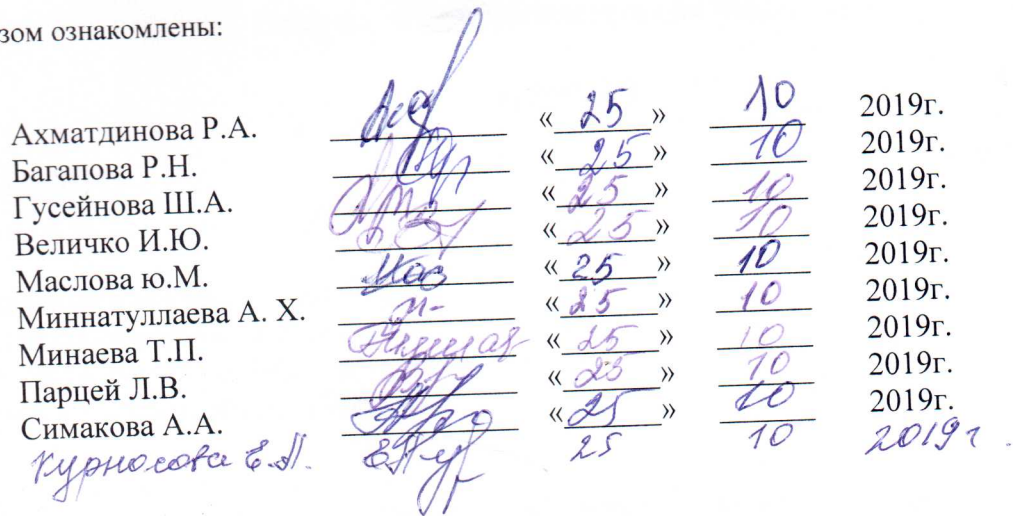 зом ознакомлены:
Ахматдинова Р.А. « 25 » 10 2019г.
Багапова Р.Н. « 25 » 10 2019г.
Гусейнова Ш.А. « 25 » 10 2019г.
Величко И.Ю. « 25 » 10 2019г.
Маслова ю.М. Мас « 25 » 10 2019г.
Миннатуллаева А. Х. « 25 » 10 2019г.
Минаева Т.П. « 25 » 10 2019г.
Парцей Л.В. « 25 » 10 2019г.
Симакова А.А. « 25 » 10 2019г.
Курносова Е.П. 25 10 2019г.